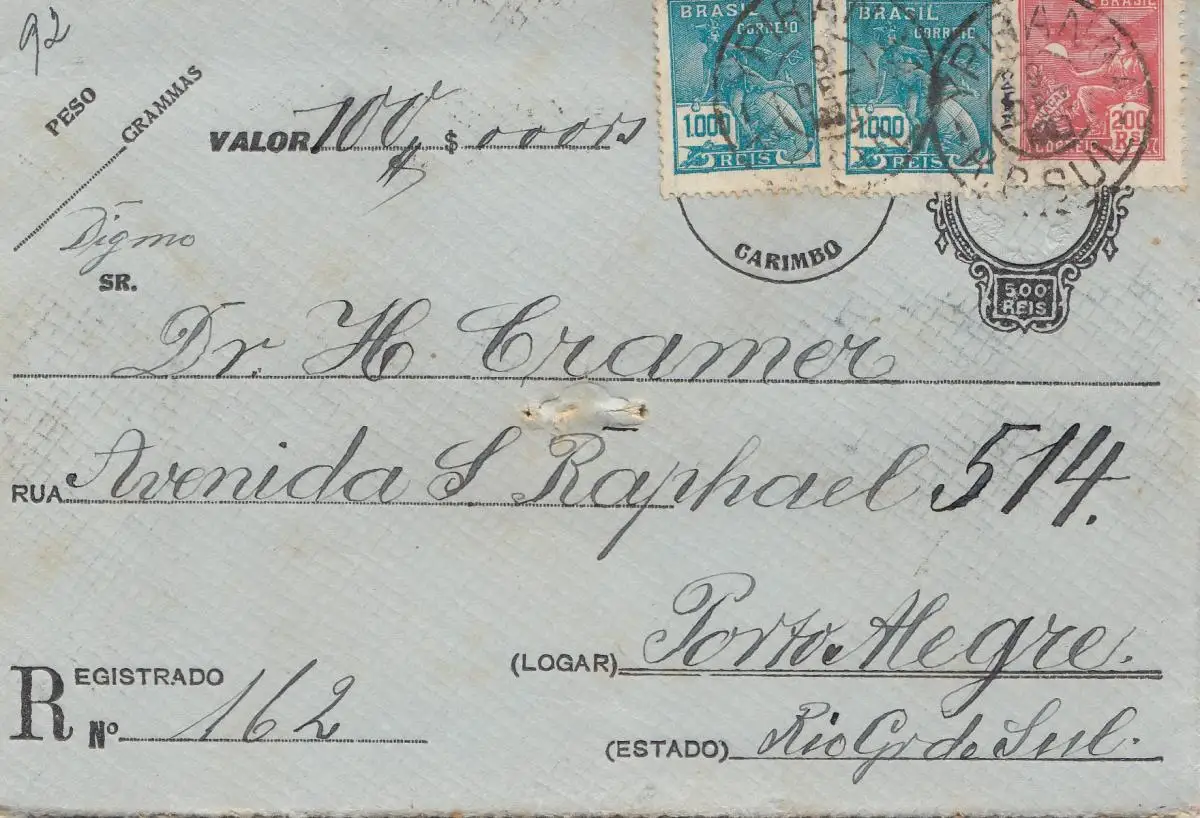 92
PESO
GRAMMAS
VALOR 100 $ 000rs
BRASIL
CORREIO
1.000
REIS
BRASIL
CORREIO
1.000
REIS
BRASIL
200
RS
CORREIO
YPIRANGA
R.G.SUL
CARIMBO
500
REIS
Digmo
SR.
Dr. H. Cramer
RUA Avenida S Raphael 514.
REGISTRADO
Nº 162
(LOGAR) Porto Alegre.
(ESTADO) Rio Gr do Sul.